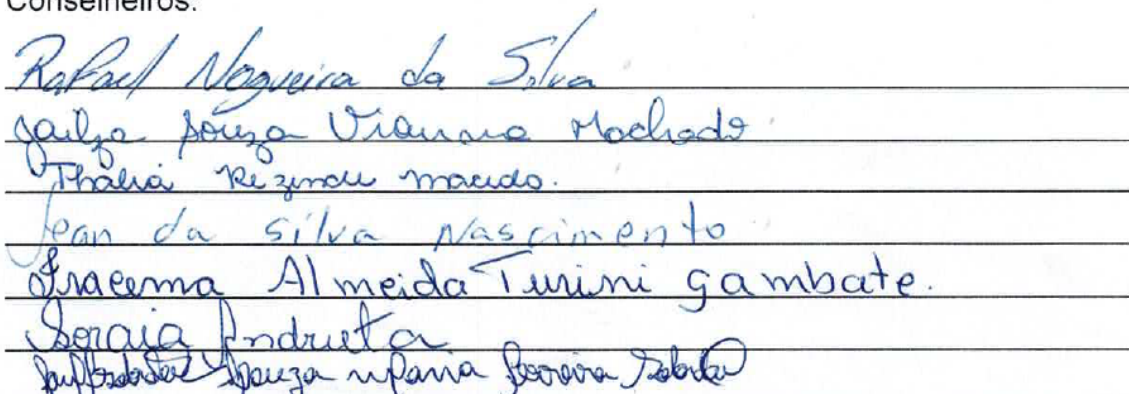 Conselheiros:
Rafael Nogueira da Silva
Jailza Souza Vianna Machado.
Thalia Rezende Macedo.
Jean da Silva Nascimento
Iracema Almeida Turini gambate.
Soraia Andrieta
Souza